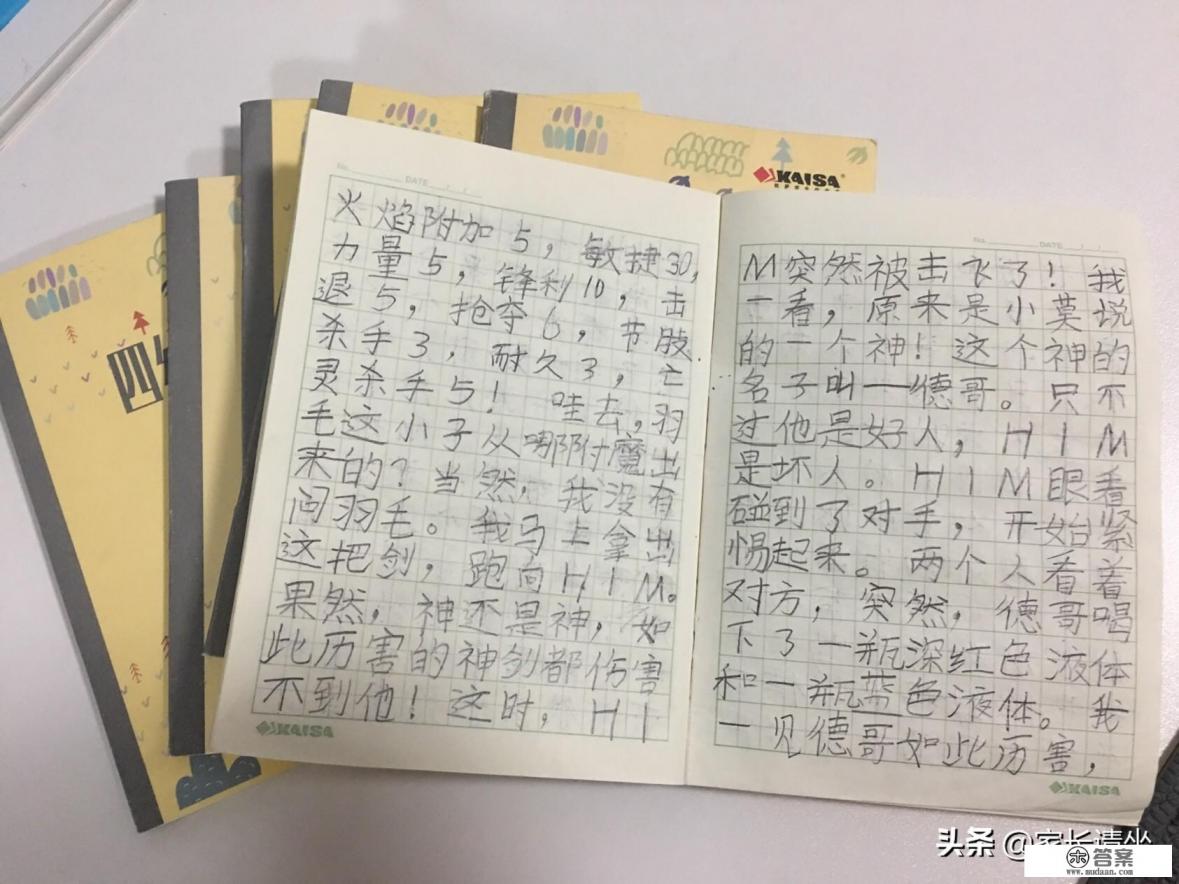 No. DATE / /
火焰附加5，敏捷30，
力量5，锋利10，击
退5，抢夺6，节肢
杀手3，耐久3，亡
灵杀手5！哇去，羽
毛这小子从哪附魔出
来的？当然，我没有
问羽毛。我马上拿出
这把剑，跑向HIM。
果然，神还是神，如
此历害的神剑都伤害
不到他！这时，HI
KAISA
No. DATE / /
M突然被击飞了！我
一看，原来是小莫说
的一个神！这个神的
名子叫——德哥。只不
过他是好人，HIM
是坏人。HIM眼看
碰到了对手，开始紧
惕起来。两个人看着
对方，突然，德哥喝
下了一瓶深红色液体
和一瓶蓝色液体。我
一见德哥如此历害，
KAISA
KAISA
四
头条 @家长请坐
答案
www.mudaan.com